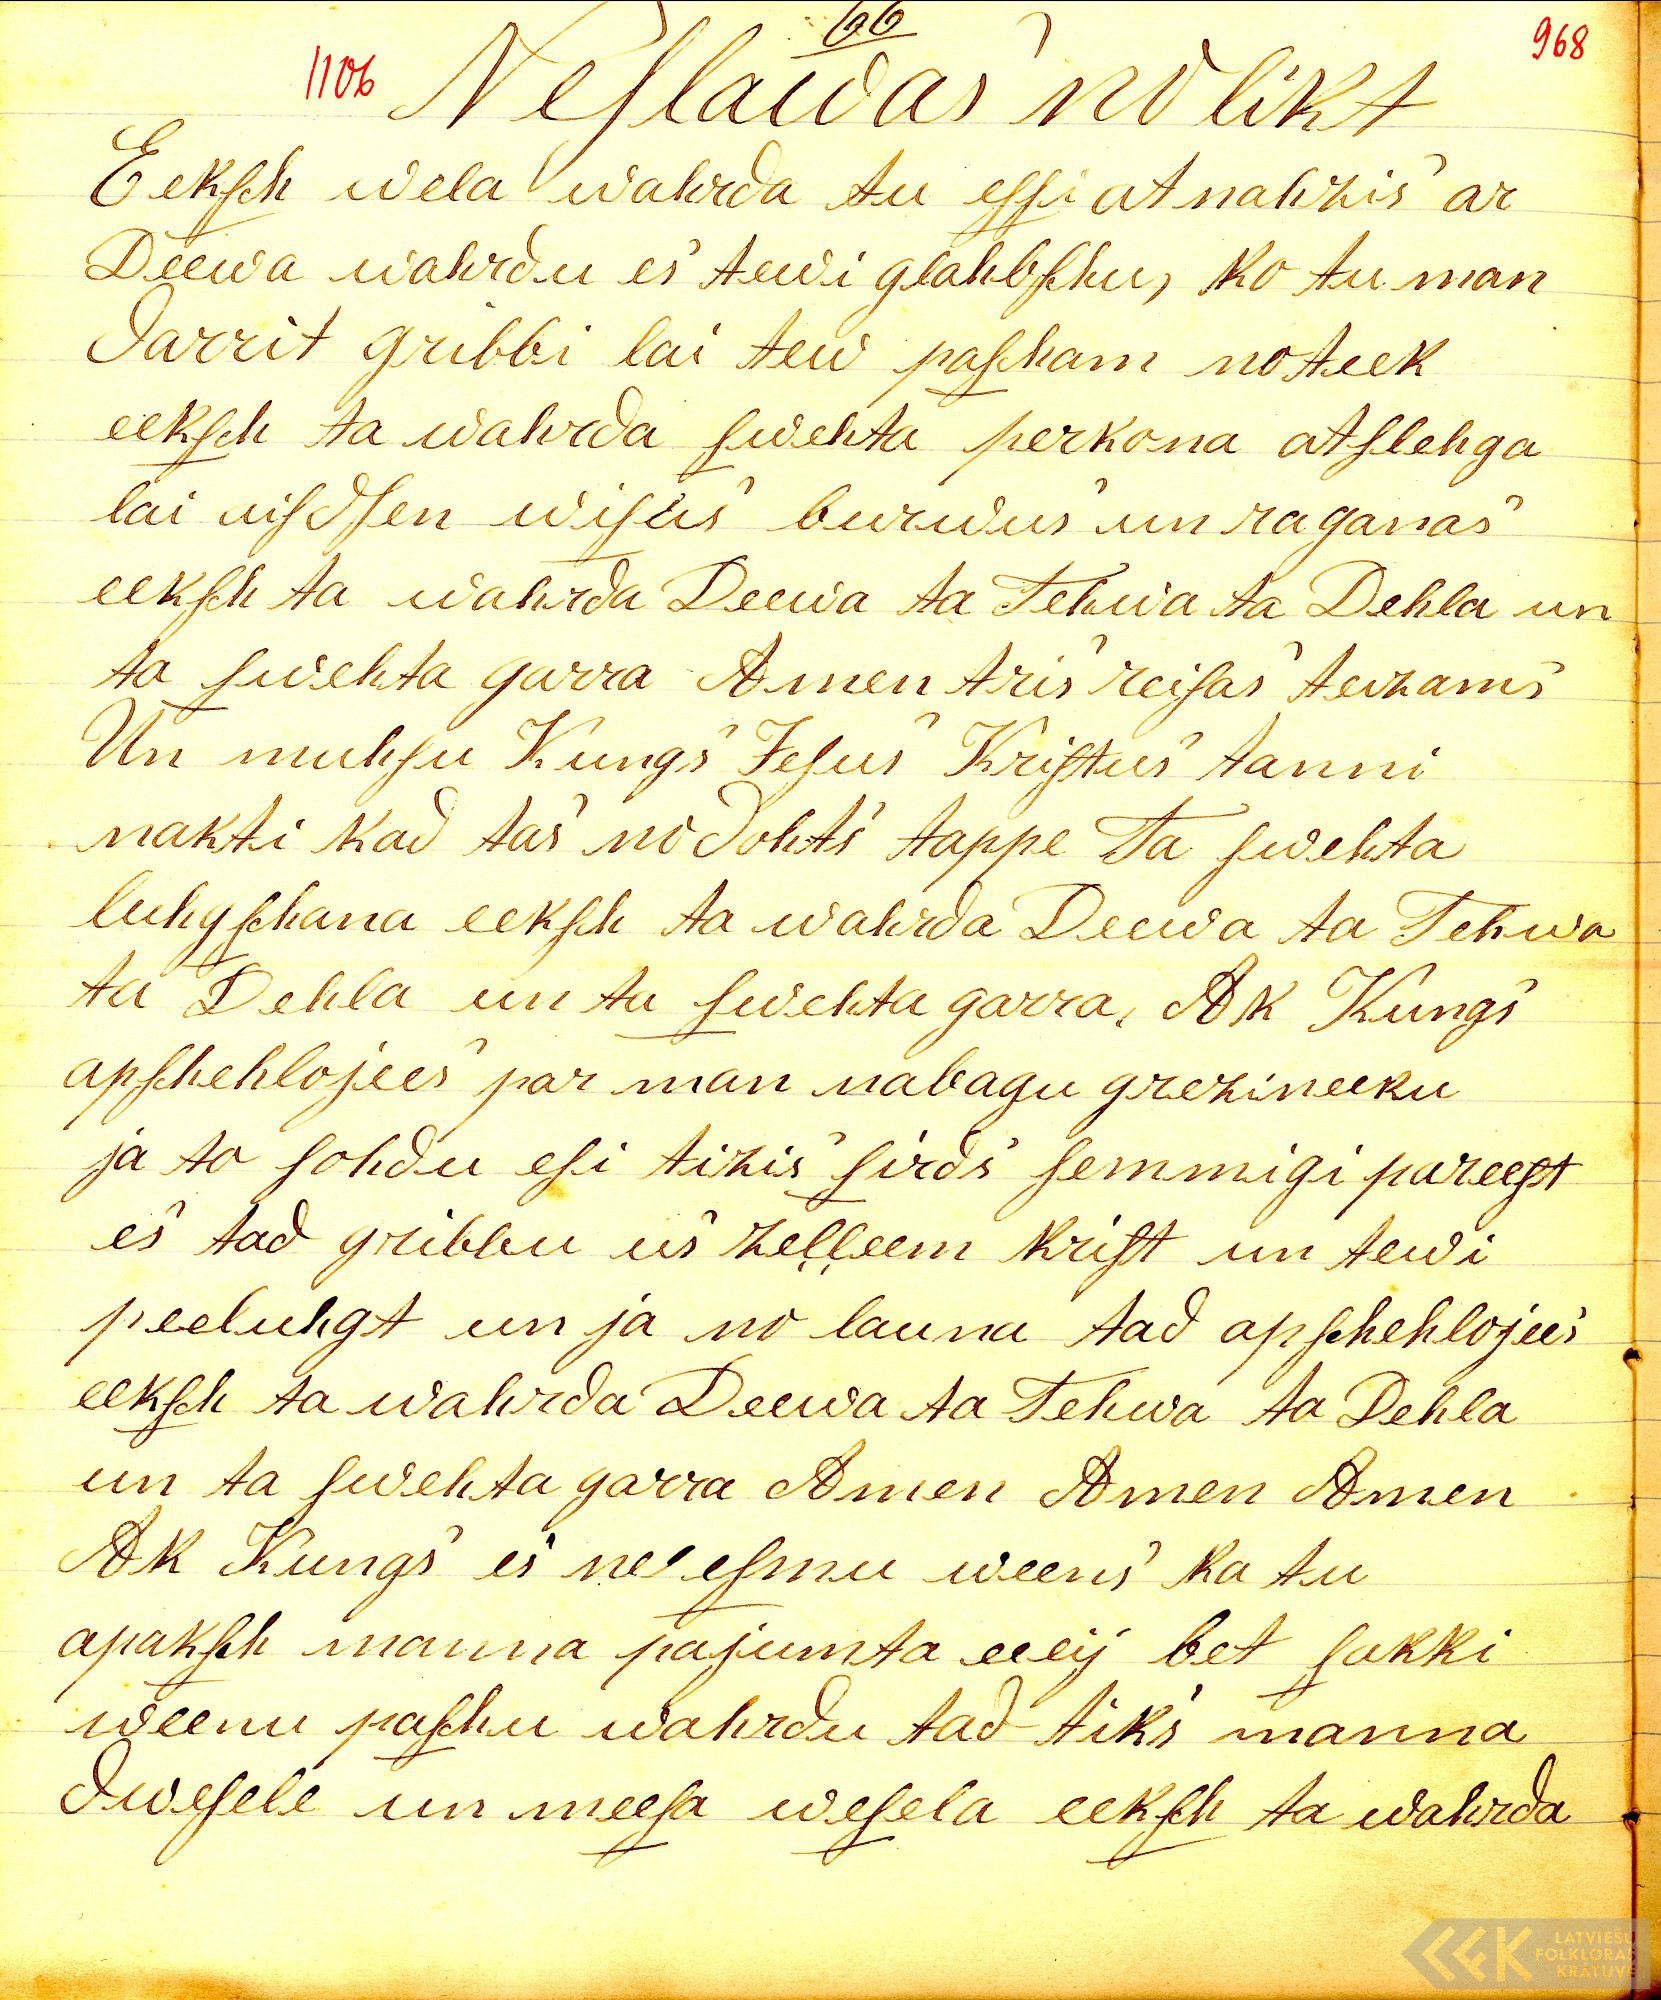 66
968
1106
Neſlawas nolikt
Eekſch wela wahrda tu eſſi atnahzis ar
Deewa wahrdu es tewi glahbſchu, ko tu man
darrit gribbi lai tew paſcham noteek
eekſch ta wahrda ſwehta perkona atſlehga
lai uiſdſen wiſus burwus un raganas
eekſch ta wahrda Deewa ta Tehwa ta Dehla un
ta ſwehta garra Amen tris reiſas tewzams
Un muhſu Kungs Jeſus Kriſtus tanni
nakti kad tas nodohts tappe Ta ſwehta
luhgſchana eekſch ta wahrda Deewa ta Tehwa
ta Dehla un ta ſwehta garra, Ak Kungs
apſchehlojees par man nabagu grezineeku
ja to ſohdu eſi tizis ſirds ſemmigi pareeſt
es tad gribbu us zeļļeem kriſt un tewi
peeluhgt un ja no launa tad apſchehlojees
eekſch ta wahrda Deewa ta Tehwa ta Dehla
un ta ſwehta garra Amen Amen Amen
Ak Kungs es ne eſmu weens ka tu
apakſch manna pajumta eeij bet ſakki
weenu paſchu wahrdu tad tiks manna
dweſele un meeſa weſela eekſch ta wahrda
LATVIEŠU
FOLKLORAS
KRĀTUVE